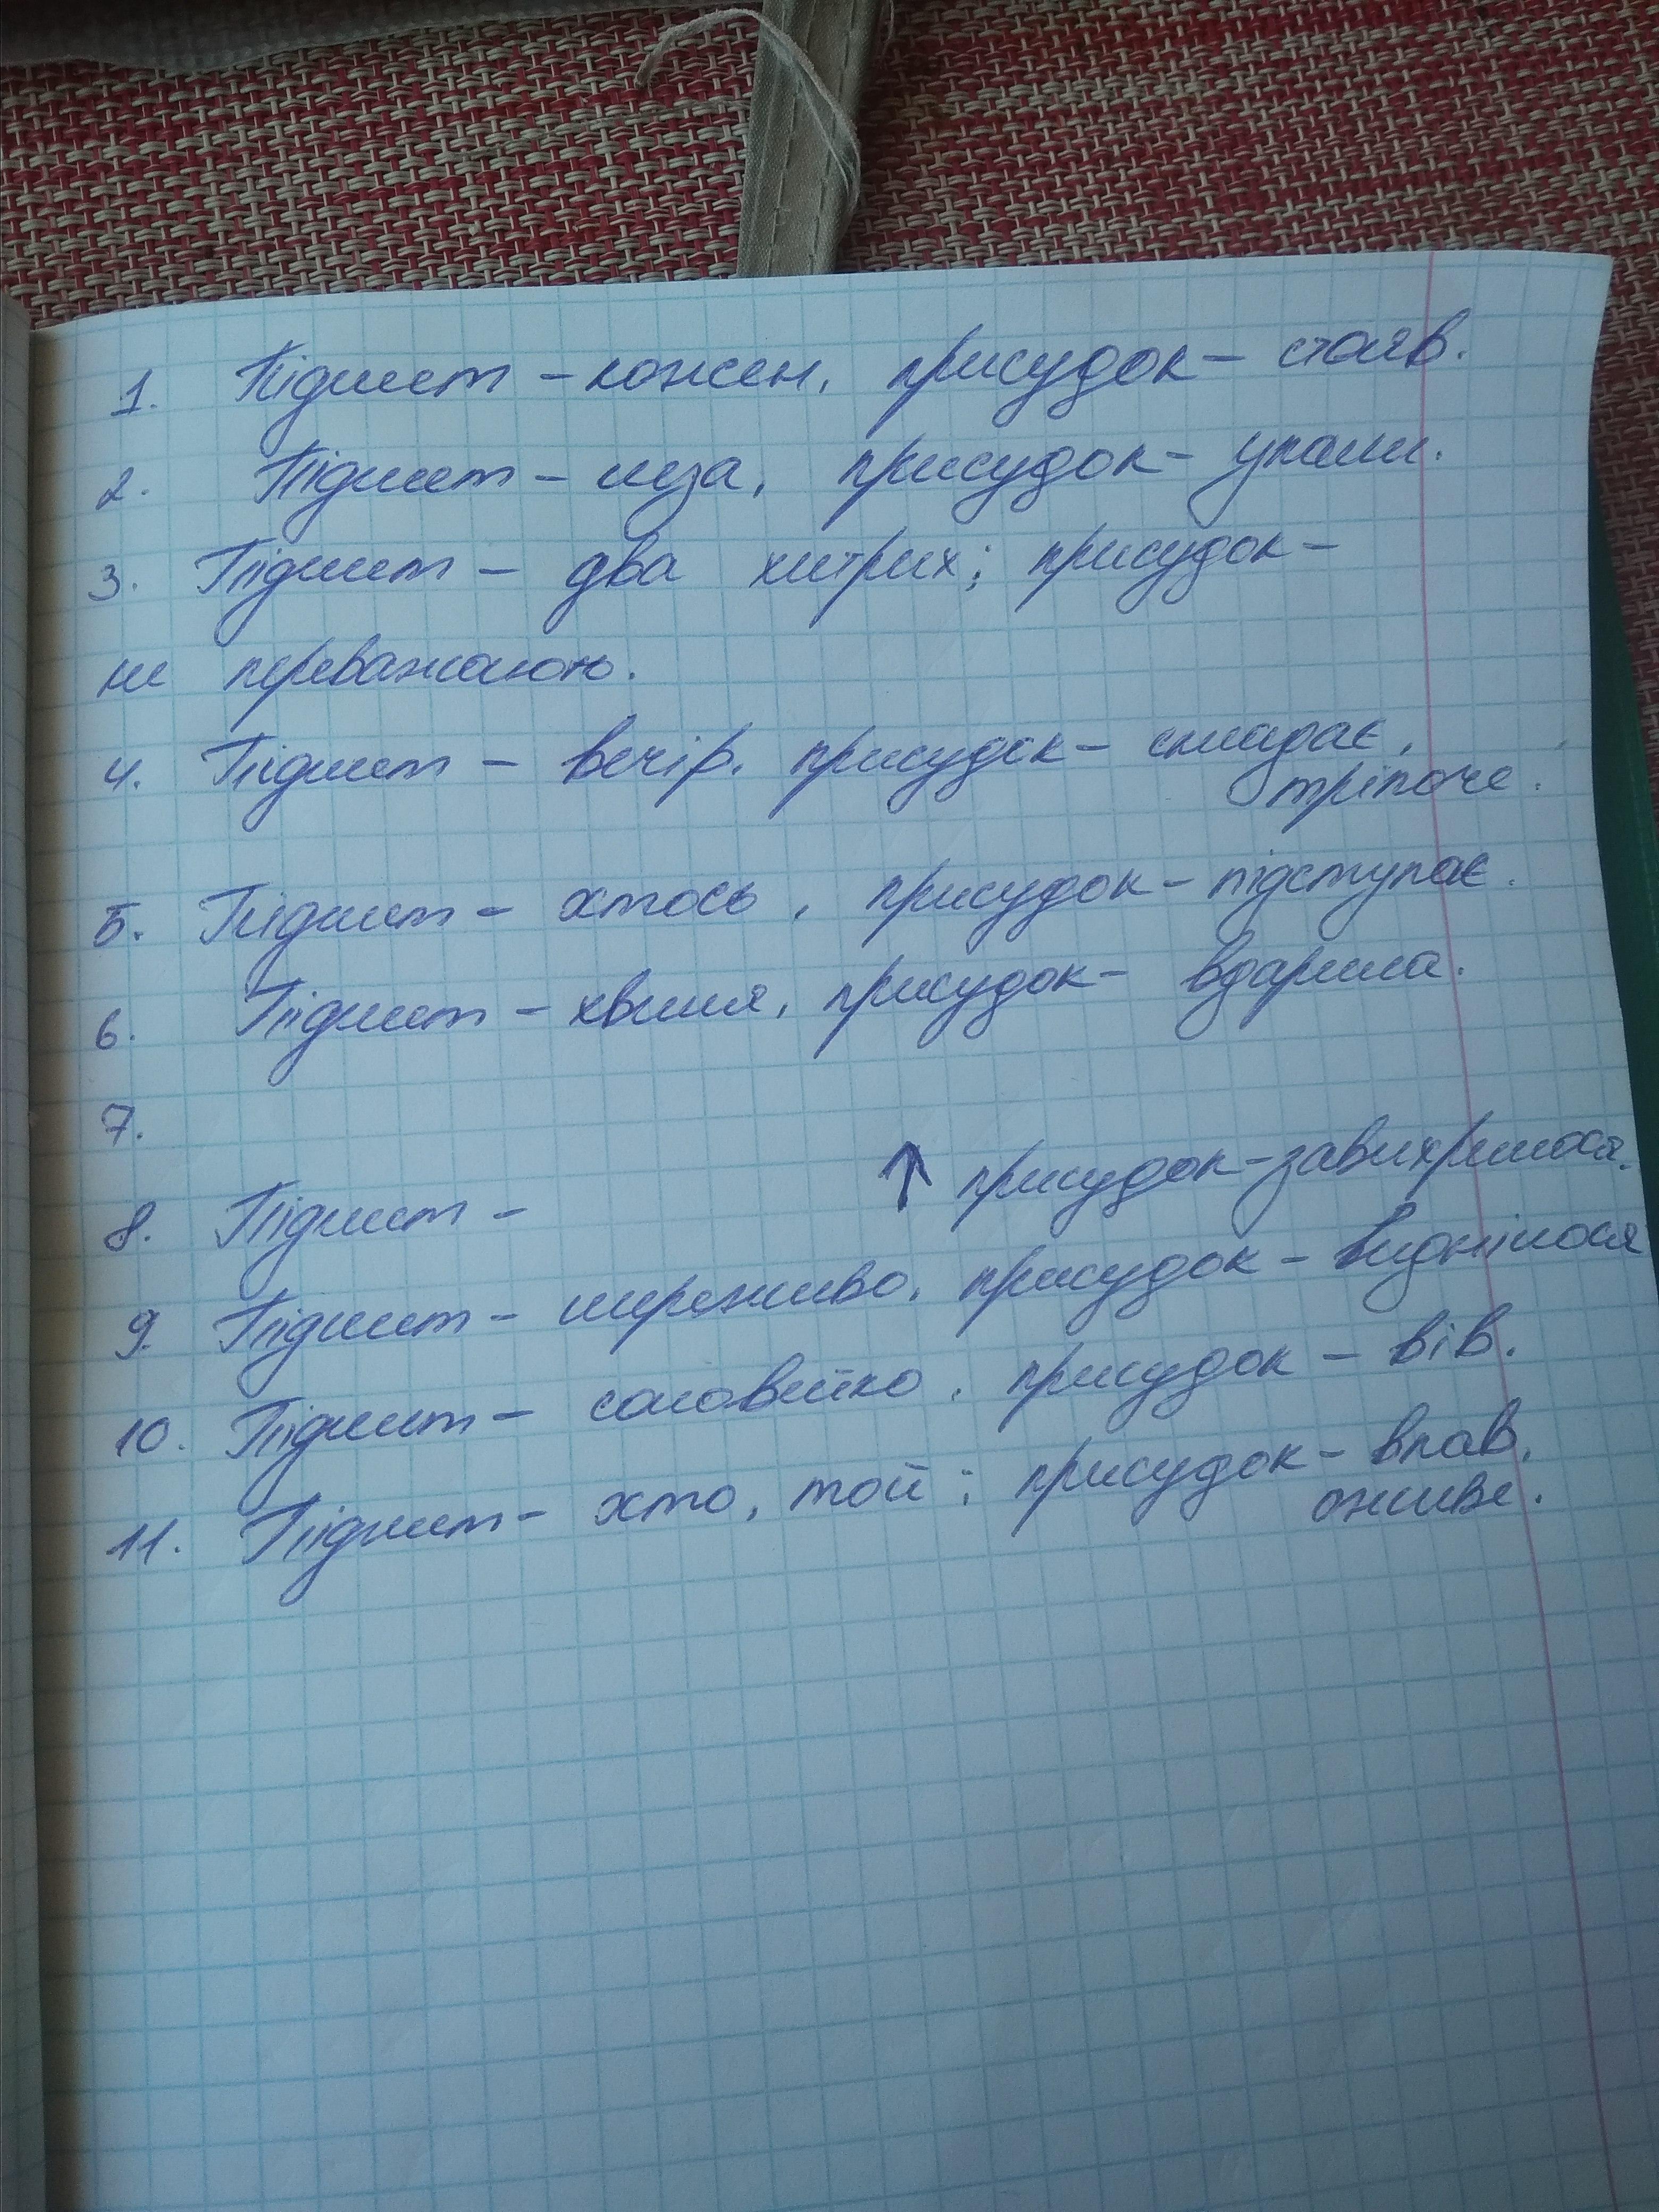 1. Підмет – кожен, присудок – стояв.
2. Підмет – муза, присудок – упали.
3. Підмет – два хитрих; присудок –
не переважаю.
4. Підмет – вечір. присудок – складає,
тріпоче.
5. Підмет – хтось, присудок – підступає.
6. Підмет – хвиля, присудок – вдарила.
7.
8. Підмет – ↑ присудок – завихрилося.
9. Підмет – мереживо, присудок – виднілося
10. Підмет – соловейко, присудок – вів.
11. Підмет – хто, той; присудок – впав,
оживе.